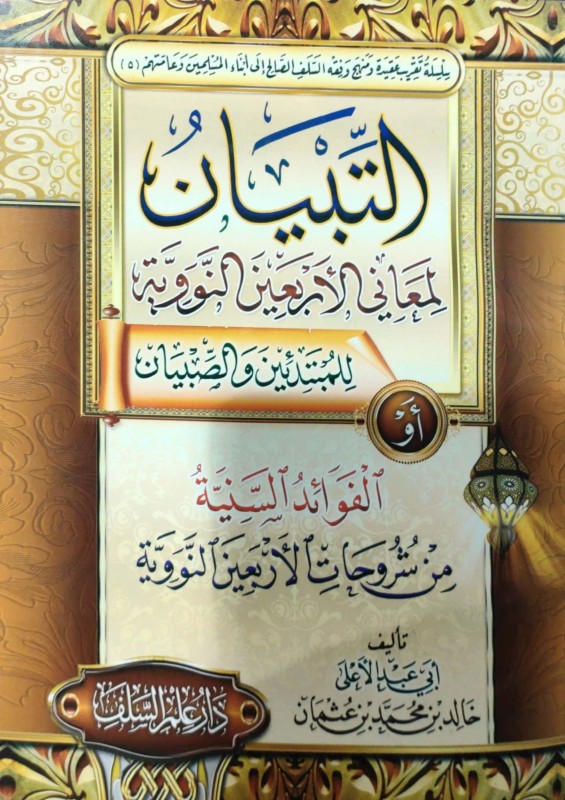 سِلْسِلَةُ تَقْرِيبِ عَقِيدَةِ وَمَنْهَجِ وَفِقْهِ السَّلَفِ الصَّالِحِ إِلَى أَبْنَاءِ المُسْلِمِينَ وَعَامَّتِهِمْ (٥)
التِّبْيَانُ
لِمَعَانِي الأَرْبَعِينَ النَّوَوِيَّةِ
لِلْمُبْتَدِئِينَ وَالصِّبْيَانِ
أَوْ
الفَوَائِدُ السَّنِيَّةُ
مِنْ شُرُوحَاتِ الأَرْبَعِينَ النَّوَوِيَّةِ
تأليف
أَبِي عَبْدِ الأَعْلَى
خَالِد بْن مُحَمَّد بْن عُثْمَان
دَارُ عِلْمِ السَّلَفِ